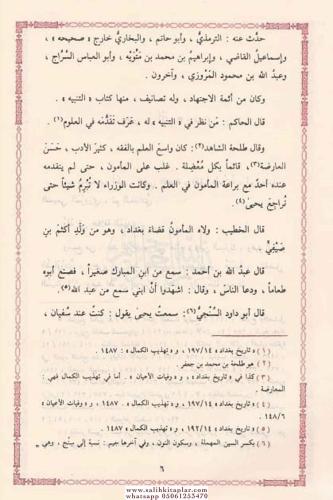 حدَّث عنه : الترمذيُّ ، وأبو حاتم ، والبخاريُّ خارج « صحيحه » ،
وإسماعيلُ القاضي ، وإبراهيم بن محمد بن مَتُّوَيْه ، وأبو العباس السَّرَّاج ،
وعبدُ الله بن محمود المَرْوَزي ، وآخرون .
وكان من أئمة الاجتهاد ، وله تصانيف ، منها كتاب « التنبيه » .
قال الحاكم : مَن نظر في « التنبيه » له ، عَرَف تَقَدُّمَه في العلوم(١) .
وقال طلحة الشاهد(٢) : كان واسعَ العلم بالفقه ، كثيرَ الأدب ، حَسَنَ
العارضة(٣) ، قائماً بكل مُعْضِلة . غلب على المأمون ، حتى لم يتقدمه
عنده أحدٌ مع براعة المأمون في العلم . وكانت الوزراء لا تُبْرِمُ شيئاً حتى
تُراجعَ يحيى(٤) .
قال الخطيب : ولاه المأمونُ قضاة بغداد ، وهو من وَلَدِ أَكْثَمَ بنِ
صَيْفِيّ
قال عبدُ الله بن أحمد : سمع من ابنِ المبارك صغيراً ، فصنع أبوه
طعاماً ، ودعا الناسَ ، وقال : اشهَدُوا أنَّ ابني سمع من عبد الله(٥) .
قال أبو داود السِّنْجيُّ(٦) : سمعتُ يحيى يقول : كنتُ عند سُفيان ،
(١) « تاريخ بغداد » ١٩٧/١٤ ، و « تهذيب الكمال » : ١٤٨٧ .
(٢) هو طلحة بن محمد بن جعفر .
(٣) كذا في « تاريخ بغداد » ، و « وفيات الأعيان » . أما في تهذيب الكمال فهي :
المعارضة
(٤) « تاريخ بغداد » ١٩٧/١٤ ، و « تهذيب الكمال » ، ١٤٨٧ ، و « وفيات الأعيان »
١٤٨/٦
(٥) « تاريخ بغداد » ١٩٧/١٤ ، و « تهذيب الكمال » : ١٤٨٧ .
(٦) بكسر السين المهملة ، وسكون النون ، وفي آخرها جيم : نسبة إلى سِنْج ، وهي =
٦
www.salihkitaplar.com
whatsapp 05061253470